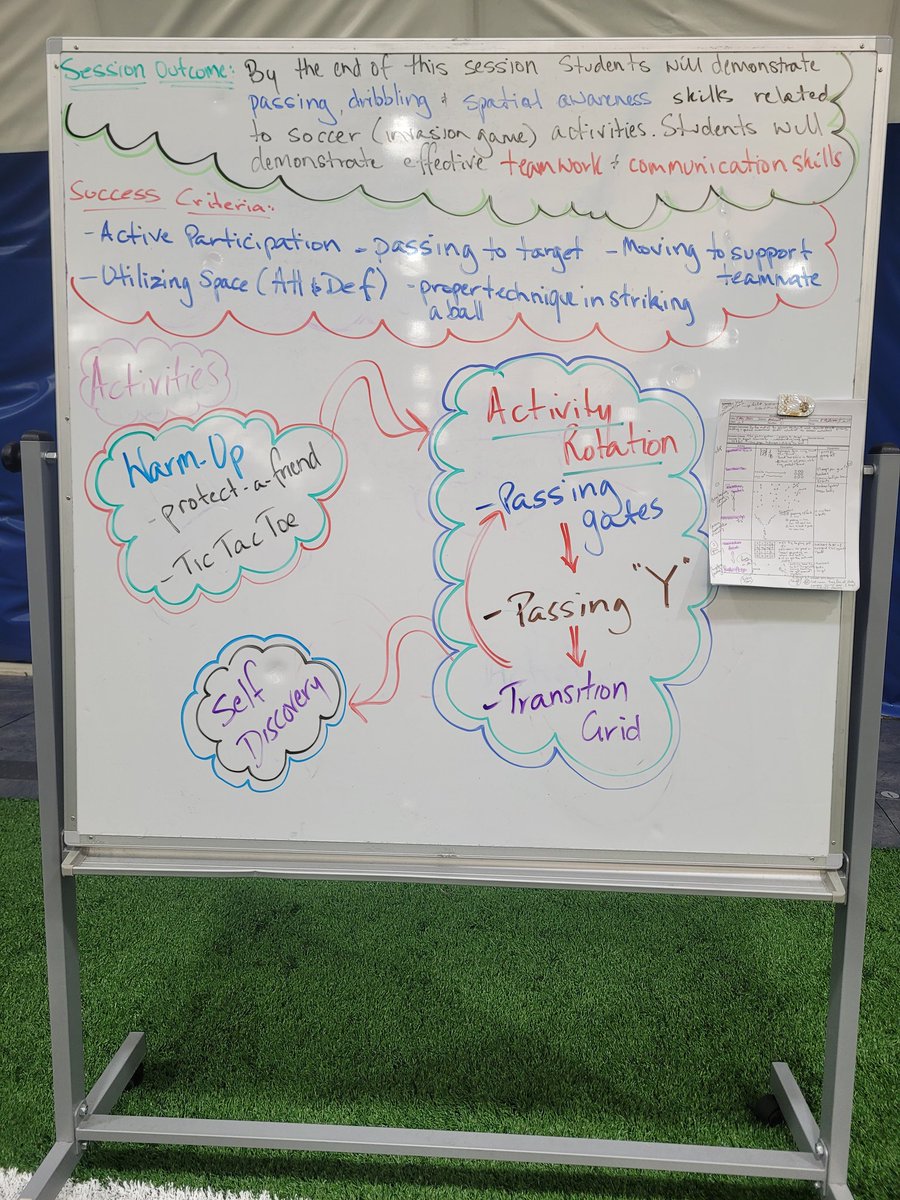 Session Outcome: By the end of this session Students will demonstrate
passing, dribbling & spatial awareness skills related
to soccer (invasion game) activities. Students will
demonstrate effective teamwork & communication skills
Success Criteria:
- Active Participation - Passing to target - Moving to support
teammate
- Utilizing Space (Att & Def) - proper technique in striking
a ball
Activities
Warm-Up
- protect-a-friend
- Tic Tac Toe
Activity
Rotation
- Passing
gates
- Passing "Y"
- Transition
Grid
Self
Discovery